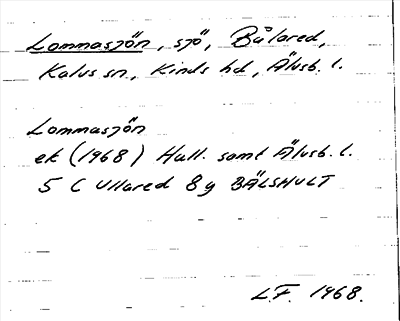 Lommasjön, sjö, Bålared,
Kalvs sn, Kinds hd, Älvsb. l.
Lommasjön
ek (1968) Hall. samt Älvsb. l.
5 C Ullared 8 g BÄLSHULT
L.F. 1968.